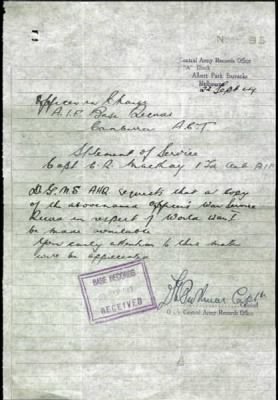 N 95
Central Army Records Office
"A" Block
Albert Park Barracks
Melbourne
Sept 44
Officer in Charge
A.I.F. Base Records
Canberra A.C.T
Statement of Service
Capt E.R. MacKay
D.G.M.S AHQ requests that a copy
of the abovenamed Officer's War Service
Record in respect of World War I
be made available
Your early attention to this matter
will be appreciated
BASE RECORDS
RECEIVED
Capt
Central Army Records Office